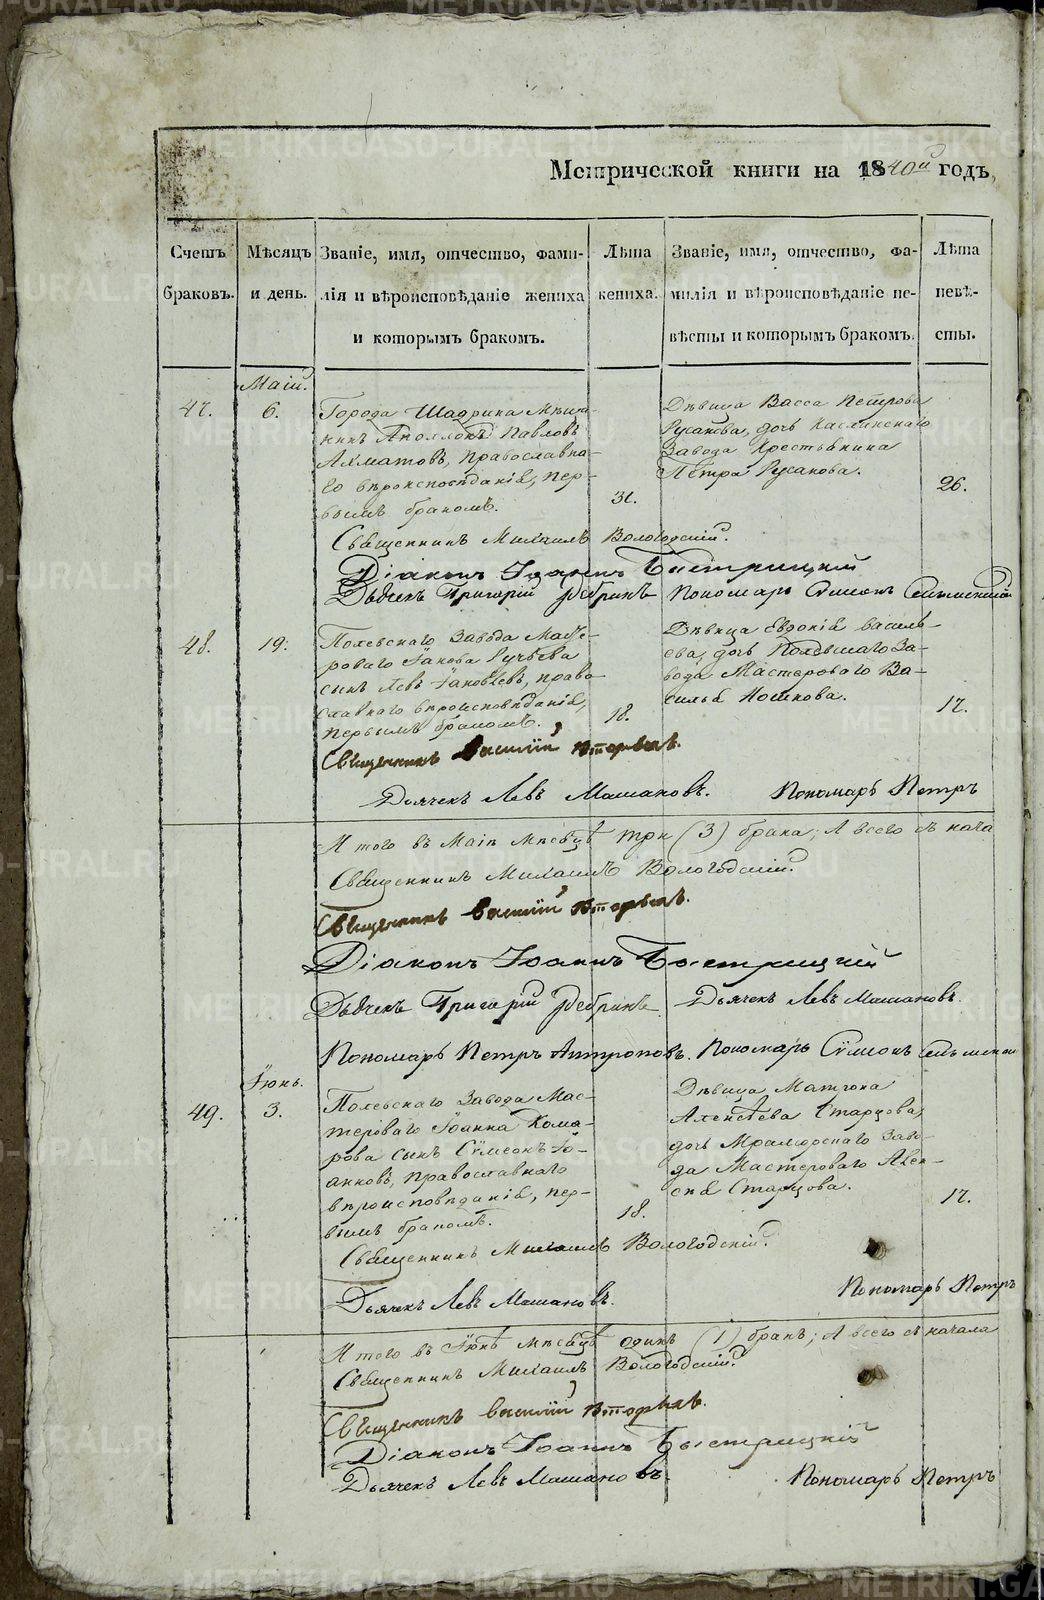 Метрической книги на 1840й годъ,
Счетъ браковъ.
Мѣсяцъ и день.
Званіе, имя, отчество, фами-
лія и вѣроисповѣданіе жениха
и которымъ бракомъ.
Лѣта
жениха.
Званіе, имя, отчество, фа-
милія и вѣроисповѣданіе не-
вѣсты и которымъ бракомъ.
Лѣта
невѣ-
сты.
Маій.
47.
6.
Города Шадрина Мѣща-
нинъ Аполлонъ Павловъ
Ахматовъ, православна-
го вѣроисповѣданія, пер-
вымъ бракомъ.
31.
Дѣвица Васса Петрова
Русакова, дочь Каслинскаго
Завода Крестьянина
Петра Русакова.
26.
Священникъ Михаилъ Вологодскій.
Діаконъ Іоаннъ Быстрицкій
Дьячекъ Григорій Ребринъ Пономарь Сѵмеонъ
48.
19.
Полевскаго Завода Масте-
роваго Іакова Ручьева
сынъ Левъ Іаковлевъ, право-
славнаго вѣроисповѣданія,
первымъ бракомъ.
18.
Дѣвица Евдокія Василь-
ева, дочь Полевскаго За-
вода Мастероваго Ва-
силья Ношкова.
17.
Священникъ Василій Вторыхъ.
Дьячекъ Левъ Машановъ. Пономарь Петръ
И того въ Маіѣ мѣсяцѣ три (3) брака; А всего съ нача
Священникъ Михаилъ Вологодскій.
Священникъ Василій Вторыхъ.
Діаконъ Іоаннъ Быстрицкій
Дьячекъ Григорій Ребринъ. Дьячекъ Левъ Машановъ.
Пономарь Петръ Антроповъ. Пономарь Сѵмеонъ
Іюнь.
49.
3.
Полевскаго Завода Мас-
тероваго Іоанна Кома-
рова сынъ Сѵмеонъ Іо-
анновъ, православнаго
вѣроисповѣданія, пер-
вымъ бракомъ.
18.
Дѣвица Матрона
Алексѣева Старцова,
дочь Мраморскаго Заво-
да Мастероваго Алек-
сѣя Старцова.
17.
Священникъ Михаилъ Вологодскій.
Дьячекъ Левъ Машановъ. Пономарь Петръ
И того въ Іюнѣ мѣсяцѣ одинъ (1) бракъ; А всего съ начала
Священникъ Михаилъ Вологодскій.
Священникъ Василій Вторыхъ.
Діаконъ Іоаннъ Быстрицкій
Дьячекъ Левъ Машановъ. Пономарь Петръ
METRIKI.GASO-URAL.RU